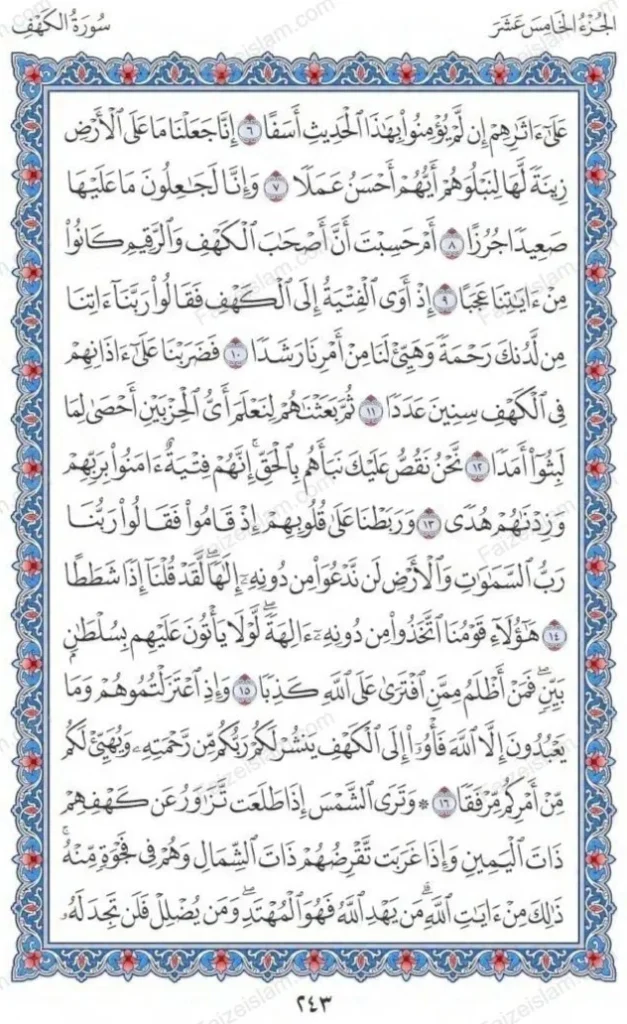 الجُزْءُ الخَامِسَ عَشَرَ
سُورَةُ الكَهْفِ
عَلَىٰٓ ءَاثَٰرِهِمْ إِن لَّمْ يُؤْمِنُوا۟ بِهَٰذَا ٱلْحَدِيثِ أَسَفًا ٦ إِنَّا جَعَلْنَا مَا عَلَى ٱلْأَرْضِ
زِينَةً لَّهَا لِنَبْلُوَهُمْ أَيُّهُمْ أَحْسَنُ عَمَلًا ٧ وَإِنَّا لَجَٰعِلُونَ مَا عَلَيْهَا
صَعِيدًا جُرُزًا ٨ أَمْ حَسِبْتَ أَنَّ أَصْحَٰبَ ٱلْكَهْفِ وَٱلرَّقِيمِ كَانُوا۟
مِنْ ءَايَٰتِنَا عَجَبًا ٩ إِذْ أَوَى ٱلْفِتْيَةُ إِلَى ٱلْكَهْفِ فَقَالُوا۟ رَبَّنَآ ءَاتِنَا
مِن لَّدُنكَ رَحْمَةً وَهَيِّئْ لَنَا مِنْ أَمْرِنَا رَشَدًا ١٠ فَضَرَبْنَا عَلَىٰٓ ءَاذَانِهِمْ
فِى ٱلْكَهْفِ سِنِينَ عَدَدًا ١١ ثُمَّ بَعَثْنَٰهُمْ لِنَعْلَمَ أَىُّ ٱلْحِزْبَيْنِ أَحْصَىٰ لِمَا
لَبِثُوٓا۟ أَمَدًا ١٢ نَّحْنُ نَقُصُّ عَلَيْكَ نَبَأَهُم بِٱلْحَقِّ ۚ إِنَّهُمْ فِتْيَةٌ ءَامَنُوا۟ بِرَبِّهِمْ
وَزِدْنَٰهُمْ هُدًى ١٣ وَرَبَطْنَا عَلَىٰ قُلُوبِهِمْ إِذْ قَامُوا۟ فَقَالُوا۟ رَبُّنَا
رَبُّ ٱلسَّمَٰوَٰتِ وَٱلْأَرْضِ لَن نَّدْعُوَا۟ مِن دُونِهِۦٓ إِلَٰهًا ۖ لَّقَدْ قُلْنَآ إِذًا شَطَطًا
١٤ هَٰٓؤُلَآءِ قَوْمُنَا ٱتَّخَذُوا۟ مِن دُونِهِۦٓ ءَالِهَةً ۖ لَّوْلَا يَأْتُونَ عَلَيْهِم بِسُلْطَٰنٍۭ
بَيِّنٍ ۖ فَمَنْ أَظْلَمُ مِمَّنِ ٱفْتَرَىٰ عَلَى ٱللَّهِ كَذِبًا ١٥ وَإِذِ ٱعْتَزَلْتُمُوهُمْ وَمَا
يَعْبُدُونَ إِلَّا ٱللَّهَ فَأْوُۥٓا۟ إِلَى ٱلْكَهْفِ يَنشُرْ لَكُمْ رَبُّكُم مِّن رَّحْمَتِهِۦ وَيُهَيِّئْ لَكُم
مِّنْ أَمْرِكُم مِّرْفَقًا ١٦ ۞ وَتَرَى ٱلشَّمْسَ إِذَا طَلَعَت تَّزَٰوَرُ عَن كَهْفِهِمْ
ذَاتَ ٱلْيَمِينِ وَإِذَا غَرَبَت تَّقْرِضُهُمْ ذَاتَ ٱلشِّمَالِ وَهُمْ فِى فَجْوَةٍ مِّنْهُ ۚ
ذَٰلِكَ مِنْ ءَايَٰتِ ٱللَّهِ ۗ مَن يَهْدِ ٱللَّهُ فَهُوَ ٱلْمُهْتَدِ ۖ وَمَن يُضْلِلْ فَلَن تَجِدَ لَهُۥ
٢٤٣
Faizeislam.com